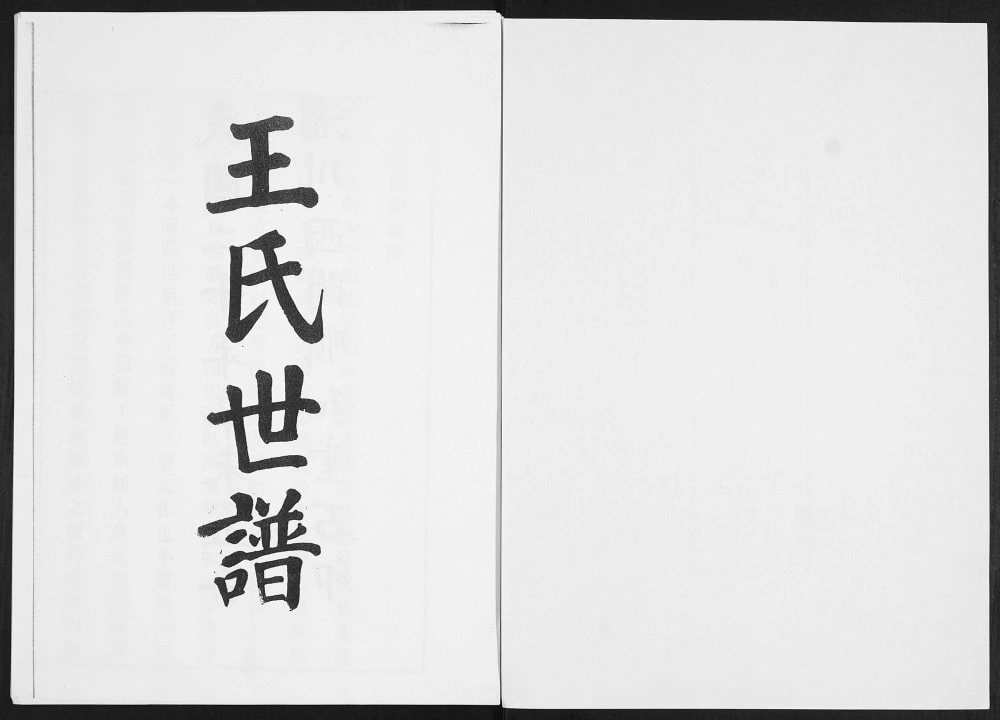 王氏世譜